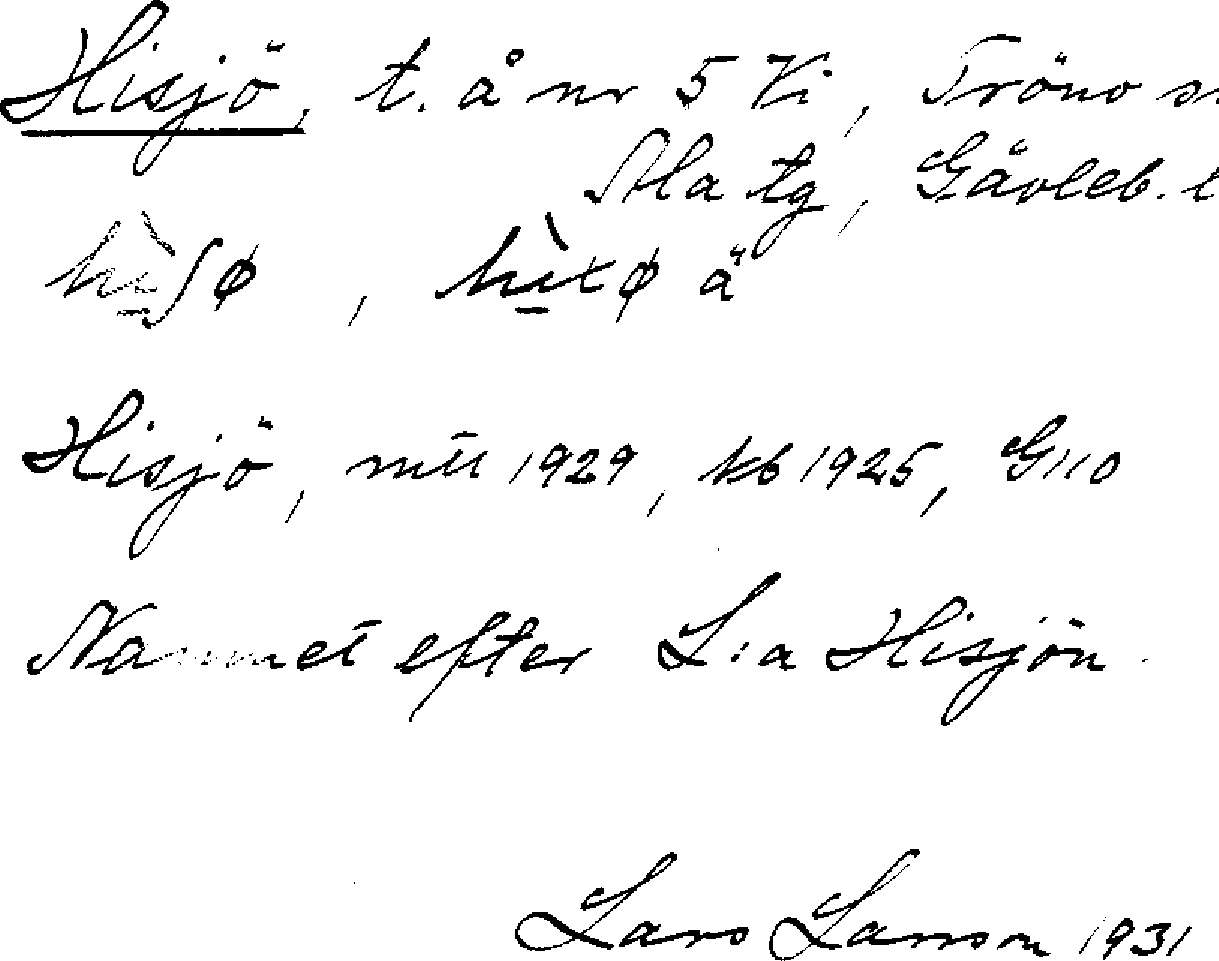 Hisjö, t. å nr 5 Vi, Tröno s.
Ala tg, Gävleb. l
hi̱ʃø, ä
Hisjö, mtl 1929, kb 1925, G110
Namnet efter L:a Hisjön.
Lars Larsson 1931